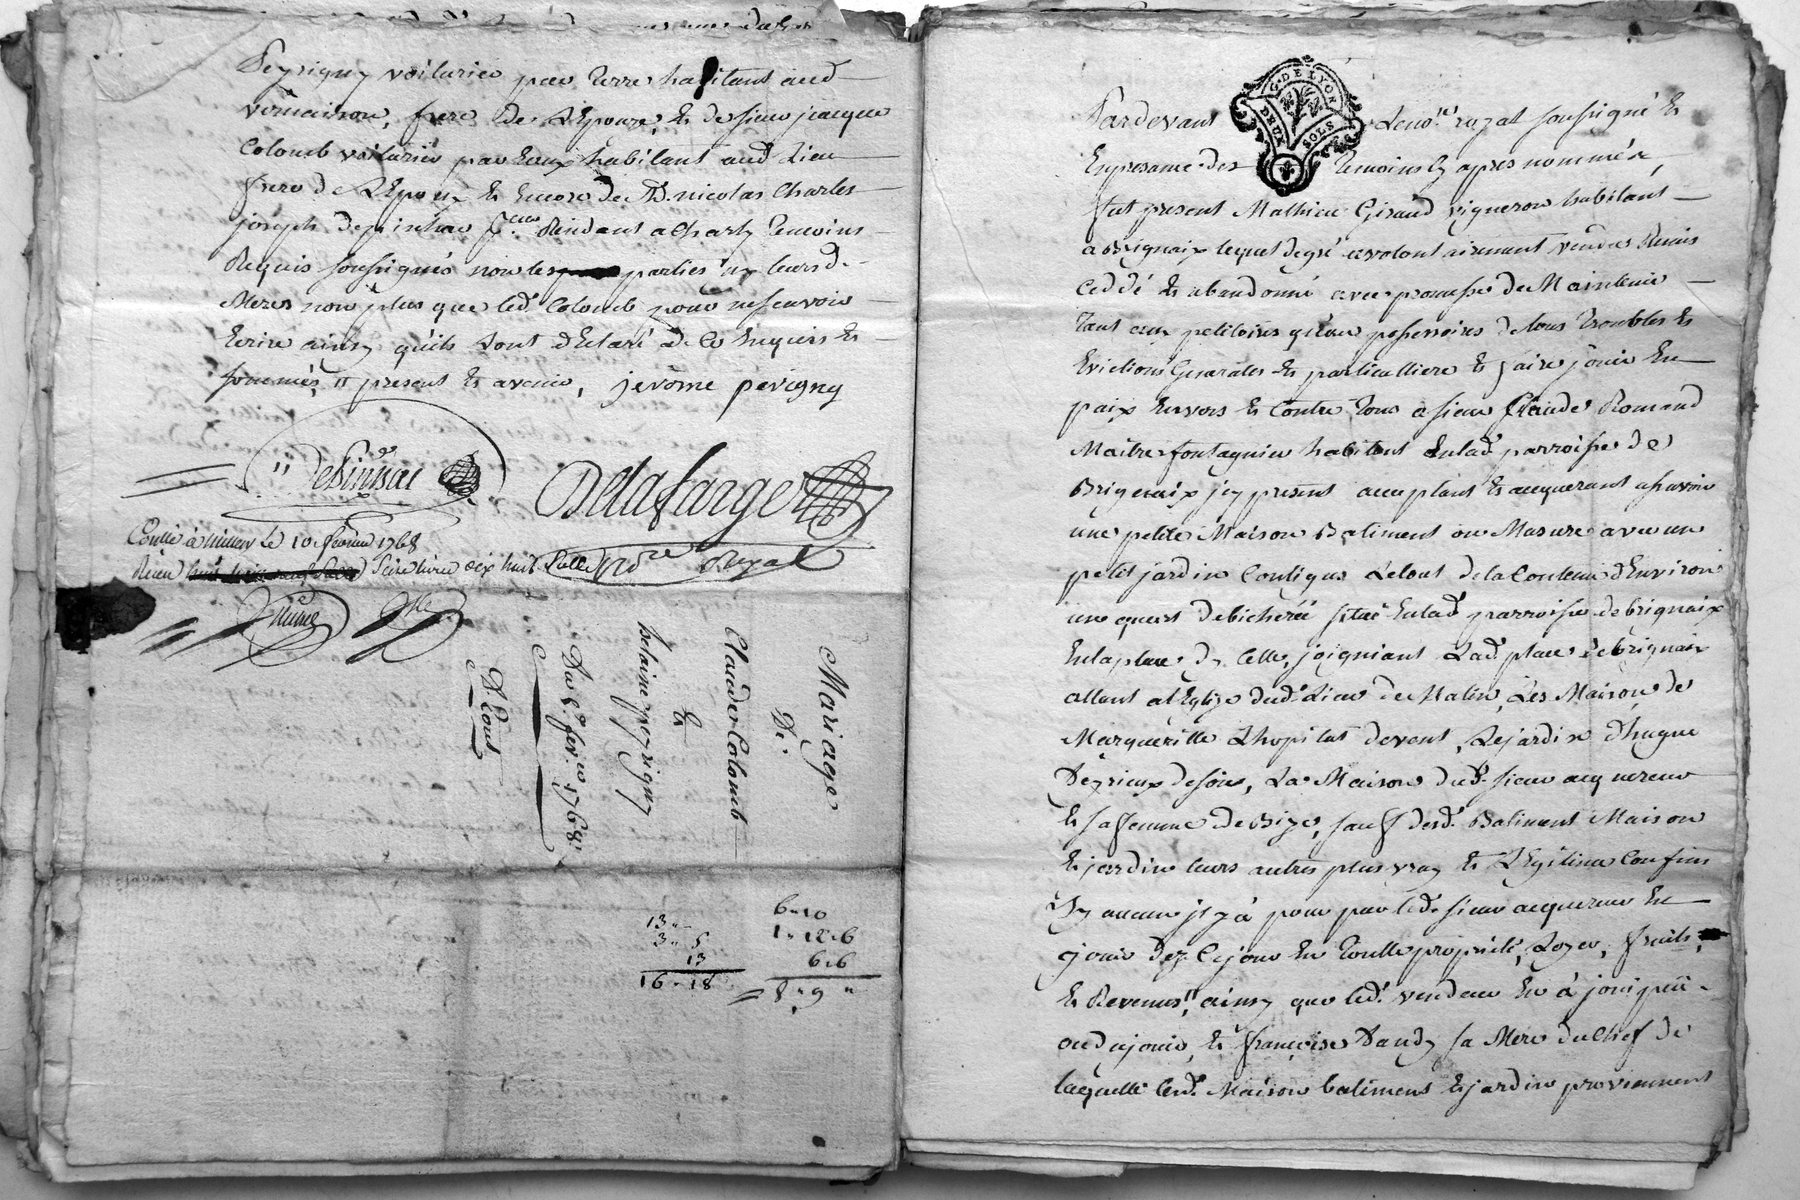 Peyrigny voiturier par terre habitant aud
vernaison, frere de L'Epouze, & de sieur jacque
Colomb voiturier par Eaux habitant aud Lieu
frere de L'Epoux & Encore de Mr. nicolas Charles
joseph Residant a Charly Temoins
Requis soussignés non les parties ny leursd.
Meres non plus que led. Colomb pour ne scavoir
Ecrire ainsy quils Lont déclaré de Ce Enquis &
sommés, presents & avenir, jerôme peyrigny
Delafarge
Conllé à millery le 10 fevrier 1768
Reçu Seize livres dix huit sols nore Royal
Mariage
De
Claude Colomb
&
helaine peyrigny
Du 8e fevrier 1768.
D. Cont
13 "
3 " 5
13
16 " 18
6 " 10
1 " 12 " 6
6 " 6
8 " 9 "
Pardevant Le nore royal soussigné &
G. DE LYON
DEUX SOLS
En presance des Temoins Cy apres nommés,
fut present Mathieu Giraud vigneron habitant
a Brignaix lequel de gré & volontairement vend Remis
Ceddé & abandonné avec promesse de Maintenir
Tant aux petitoires qu'au possessoires de tous Troubles &
Evictions Generalles & particulliere & faire jouir En
paix Envers & Contre Tous a sieur Claude Romand
Maître fontagnier habitant En lad. parroisse de
Brignaix jcy present acceptant & acquerant a scavoir
une petite Maison Batiment ou Masure avec un
petit jardin Contigus Letout de la Contenue d'Environ
un quart de bicherée situé En lad. parroisse de brignaix
En la place de Celle, joigniant Lad. place de brignaix
allant a l'Eglize dud. Lieu de Matin, Les Maison de
Margueritte Lhopital devent, Le jardin d'hugue
de soir, La Maison dud. sieur acquereur
& sa femme de Bize, sauf desd. Batiment Maison
& jardin leurs autres plus vray & Legitime Confins
sy aucun jl y à pour par led. sieur acquereur En
jouir dez Cejour En Toutte propriété, Loyer, fruits,
& Revenus, ainsy que led. vendeur En à joui pû
ou du jouir, & françoise Dandy sa Mere du Chef de
laquelle Lesd. Maison batiment & jardin proviennent